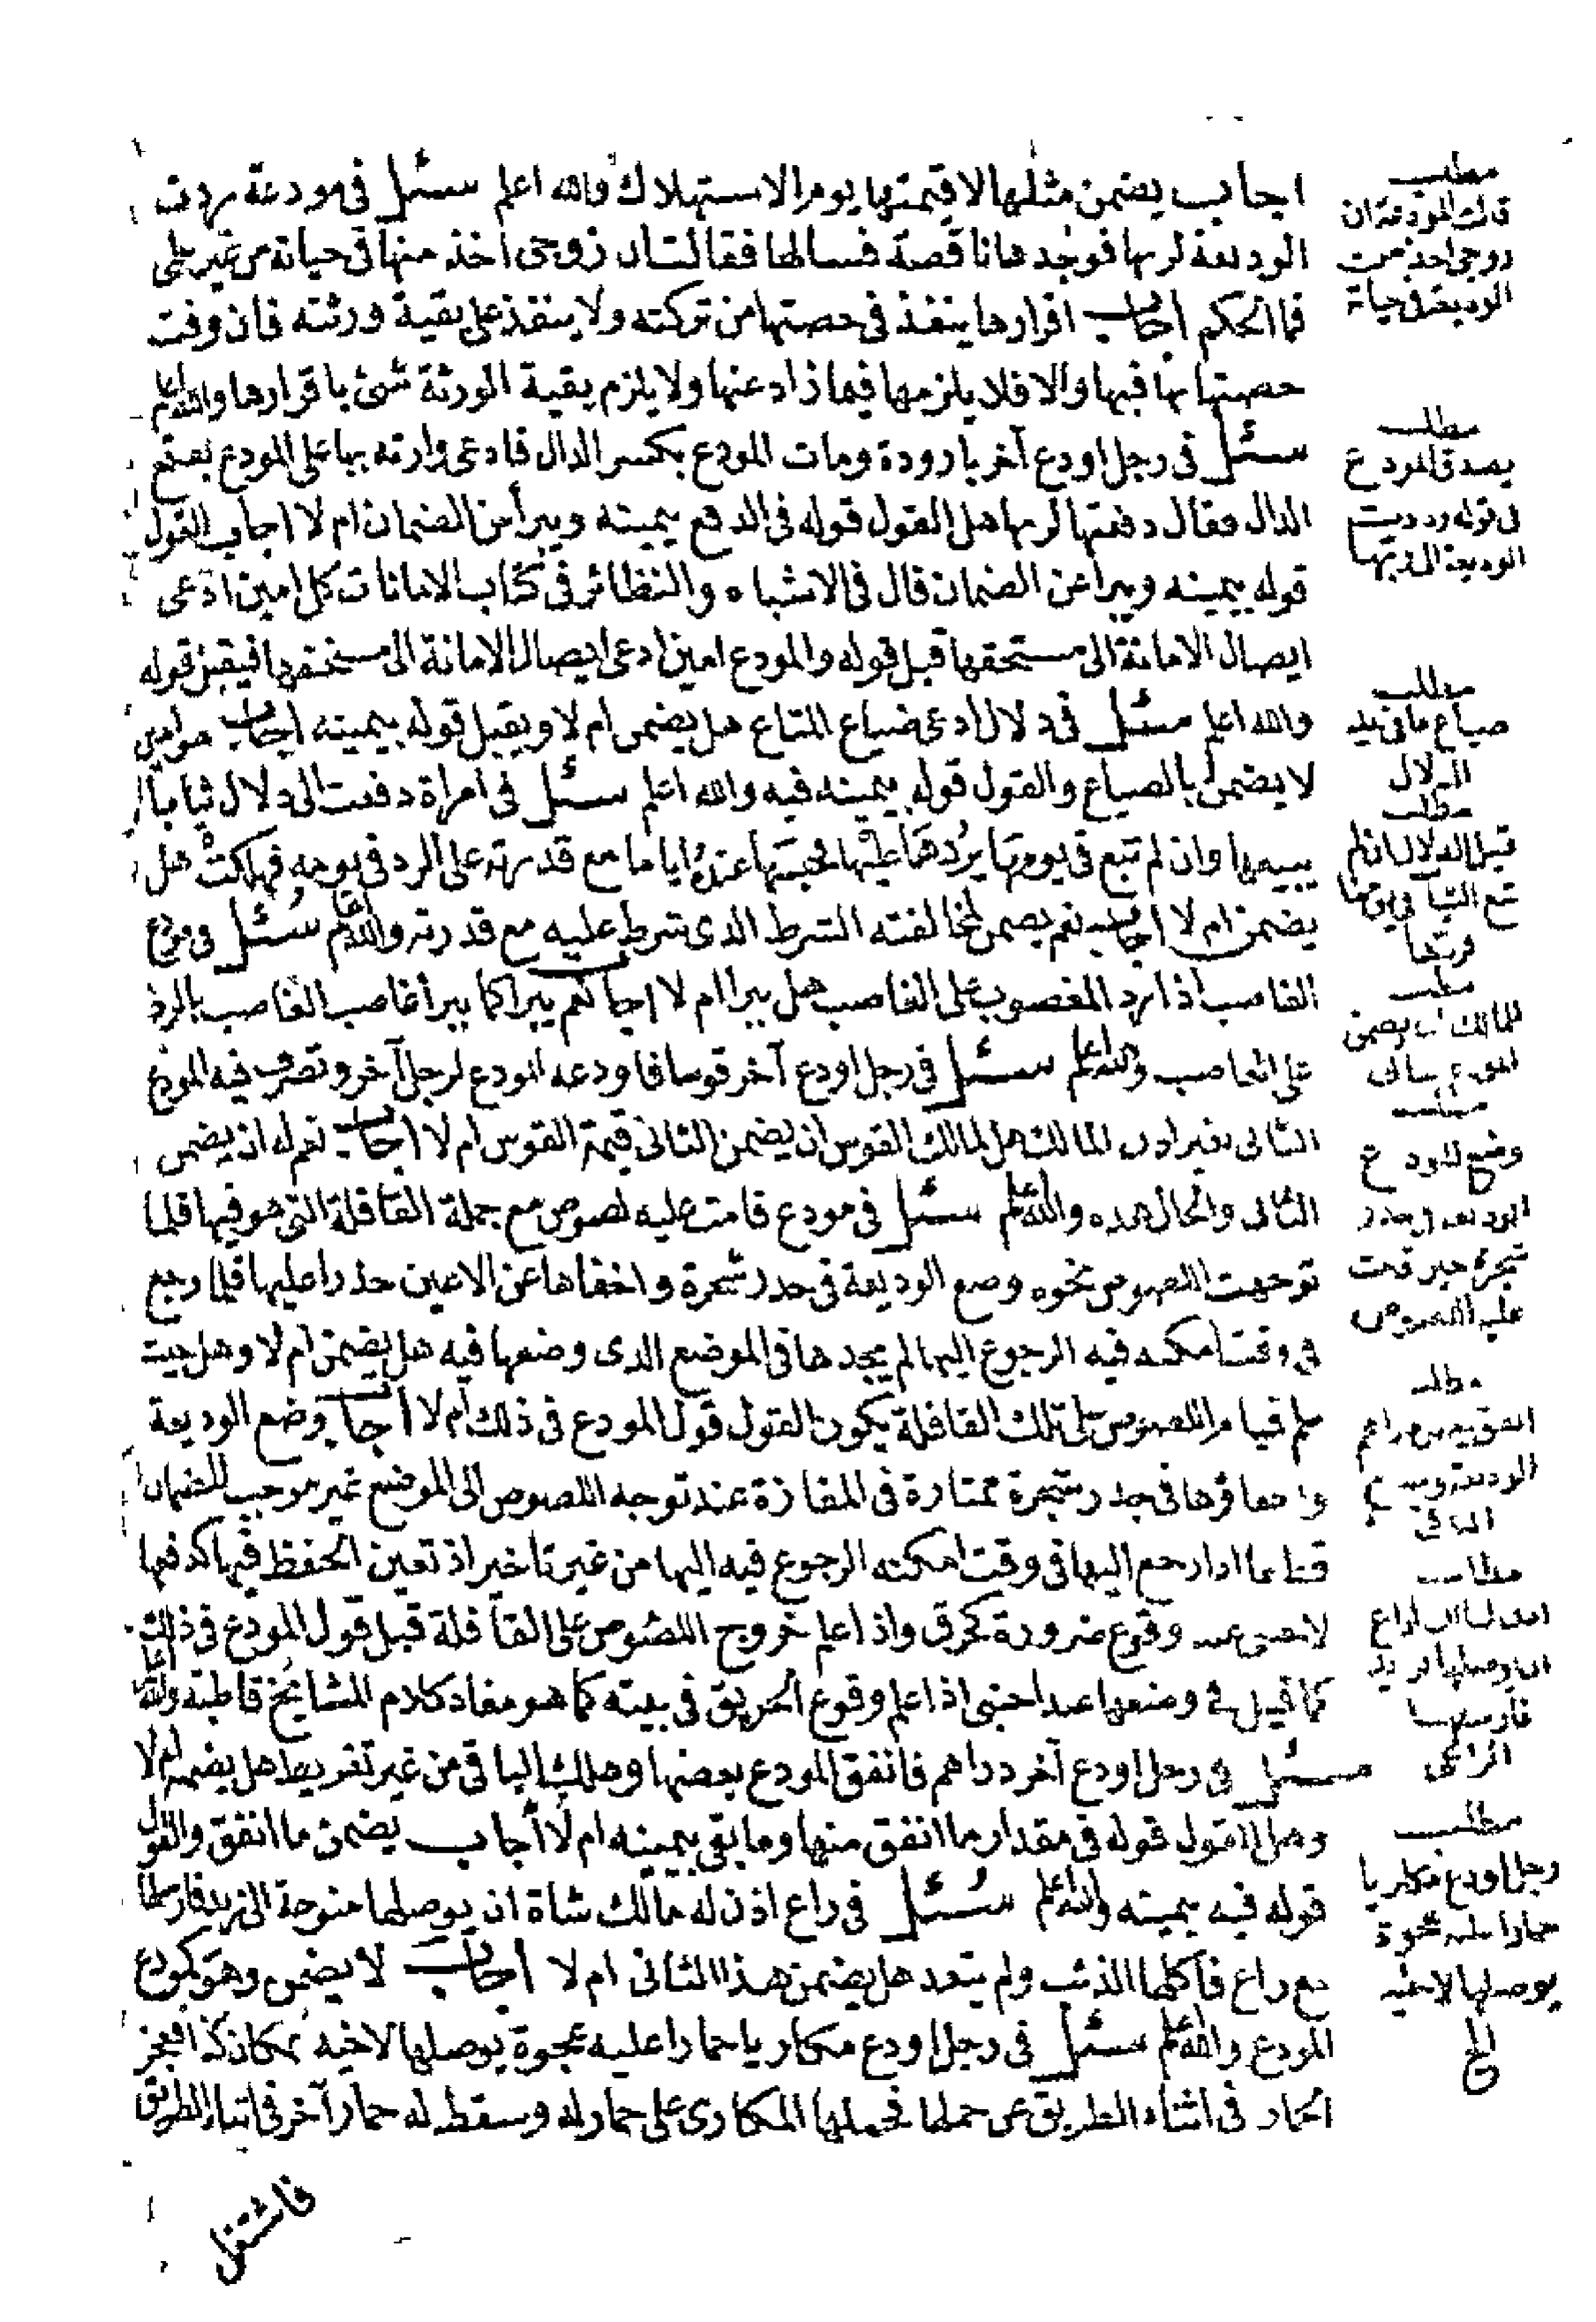 اجاب يضمن مثلها لا قيمتها يوم الاستهلاك والله اعلم سئل في مودعة ردت
الوديعة لربها فوجدها ناقصة فسالها فقالت ان زوجي اخذ منها في حياته من غير علمي
فما الحكم اجاب اقرارها ينفذ في حصتها من تركته ولا ينفذ على بقية ورثته فان وفت
حصتها بها فبها والا فلا يلزمها فيما زاد عنها ولا يلزم بقية الورثة شئ باقرارها والله اعلم
سئل في رجل اودع آخر بارودة ومات المودع بكسر الدال فادعى وارثه بها على المودع بفتح
الدال فقال دفعتها لربها هل القول قوله في الدفع بيمينه ويبرأ من الضمان ام لا اجاب القول
قوله بيمينه ويبرا عن الضمان قال في الاشباه والنظائر في كتاب الامانات كل امين ادعى
ايصال الامانة الى مستحقها قبل قوله والمودع امين ادعى ايصال الامانة الى مستحقها فيقبل قوله
والله اعلم سئل في دلال ادعى ضياع المتاع هل يضمن ام لا ويقبل قوله بيمينه اجاب هو امين
لا يضمن بالضياع والقول قوله بيمينه فيه والله اعلم سئل في امراة دفعت الى دلال ثيابا
يبيعها وان لم تبع في يومها يردها عليها فحبسها عنده اياما مع قدرته على الرد في يومه فهلكت هل
يضمن ام لا اجاب نعم يضمن لمخالفته الشرط الذي شرط عليه مع قدرته والله اعلم سئل في مودع
الغاصب اذا رد المغصوب على الغاصب هل يبرا ام لا اجاب نعم يبرا كما يبرا غاصب الغاصب بالرد
على الغاصب والله اعلم سئل في رجل اودع آخر قوسا فاودعه المودع لرجل آخر وتصرف فيه المودع
الثاني بغير اذن المالك هل لمالك القوس ان يضمن الثاني قيمة القوس ام لا اجاب نعم له ان يضمن
الثاني والحال هذه والله اعلم سئل في مودع قامت عليه لصوص مع جملة القافلة التي هو فيها فلما
توجهت اللصوص نحوه وضع الوديعة في جدر شجرة واخفاها عن الاعين حذرا عليها فلما رجع
في وقت امكنه فيه الرجوع اليها لم يجدها في الموضع الذي وضعها فيه هل يضمن ام لا وهل حيث
علم قيام اللصوص على تلك القافلة يكون القول قول المودع في ذلك ام لا اجاب وضع الوديعة
واخفاؤها في جدر شجرة ممتازة في المفازة عند توجه اللصوص الى الموضع غير موجب للضمان
قطعا اذا رجع اليها في وقت امكنه الرجوع فيه اليها من غير تاخير اذ تعين الحفظ فيها كدفعها
لاجنبي عند وقوع ضرورة كحرق واذا علم خروج اللصوص على القافلة قبل قول المودع في ذلك
كما قيل في وضعها عند اجنبي اذا علم وقوع الحريق في بيته كما هو مفاد كلام المشايخ قاطبة والله اعلم
سئل في رجل اودع آخر دراهم فانفق المودع بعضها وهلك الباقي من غير تفريط هل يضمن ام لا
وهل القول قوله في مقدار ما انفق منها وما بقي بيمينه ام لا اجاب يضمن ما انفق والقول
قوله فيه بيمينه والله اعلم سئل في راع اذن له مالك شاة ان يوصلها منوحة الى زيد فارسلها
مع راع فاكلها الذئب ولم يتعد هل يضمن هذا الثاني ام لا اجاب لا يضمن وهو كمودع
المودع والله اعلم سئل في رجل اودع مكاريا حمارا عليه عجوة يوصلها لاخيه بمكان كذا فعجز
الحمار في اثناء الطريق عن حملها فحملها المكاري على حمار له وسقط له حمار آخر في اثناء الطريق
فاشتغل
مطلب
قالت المودعة ان
زوجي اخذ من
الوديعة في حياته
مطلب
يصدق المودع
في قوله رددت
الوديعة الى ربها
مطلب
ضياع ما في يد
الدلال
مطلب
قيل للدلال ان لم
تبع الثياب في يومها
فردها
مطلب
للمالك ان يضمن
المودع الثاني
مطلب
وضع المودع
الوديعة في جدر
شجرة حين قامت
عليه اللصوص
مطلب
انفق بعض دراهم
الوديعة وضاع
الباقي
مطلب
اذن المالك لراع
ان يوصلها لزيد
فارسلها
الراعي
مطلب
رجل اودع مكاريا
حمارا عليه عجوة
يوصلها لاخيه
الخ